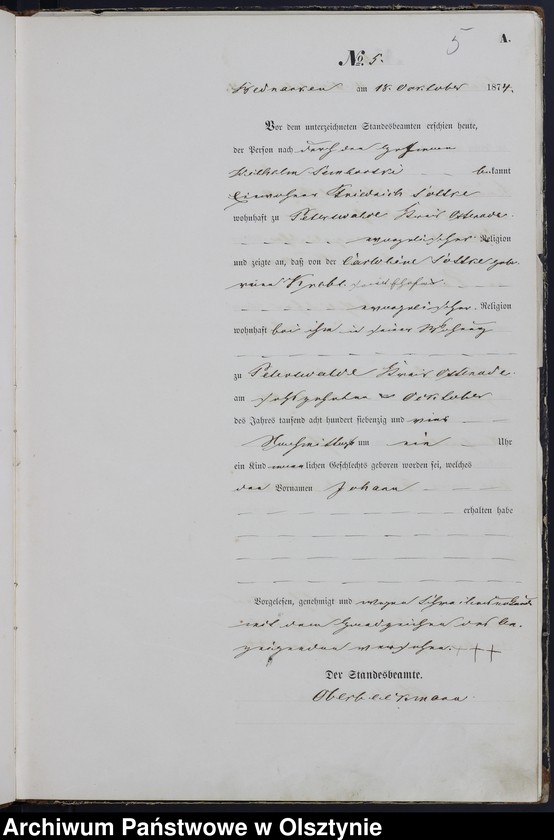 5
A.
No. 5.
am 18. October 1874.
Vor dem unterzeichneten Standesbeamten erschien heute,
der Person nach durch den
Wilhelm bekannt
Einwohner Friedrich Soltke
wohnhaft zu Peterswalde Kreis Osterode
evangelischer Religion
und zeigte an, daß von der Caroline Soltke geb.
evangelischer Religion
wohnhaft bei ihm in seiner Wohnung
zu Peterswalde Kreis Osterode
am October
des Jahres tausend acht hundert siebenzig und vier
Nachmittags um ein Uhr
ein Kind männlichen Geschlechts geboren worden sei, welches
den Vornamen Johann
erhalten habe
Vorgelesen, genehmigt und wegen
mit dem Handzeichen des An-
zeigenden versehen. +++
Der Standesbeamte.
Archiwum Państwowe w Olsztynie